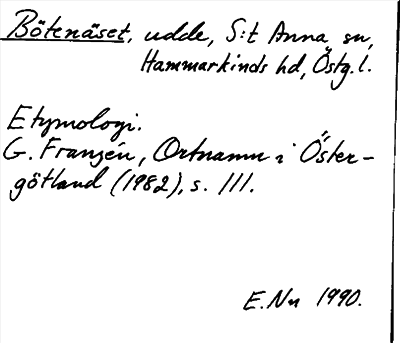 Bötenäset, udde, S:t Anna sn,
Hammarkinds hd, Östg. l.
Etymologi.
G. Franzén, Ortnamn i Öster-
götland (1982), s. 111.
E. Nn 1990.